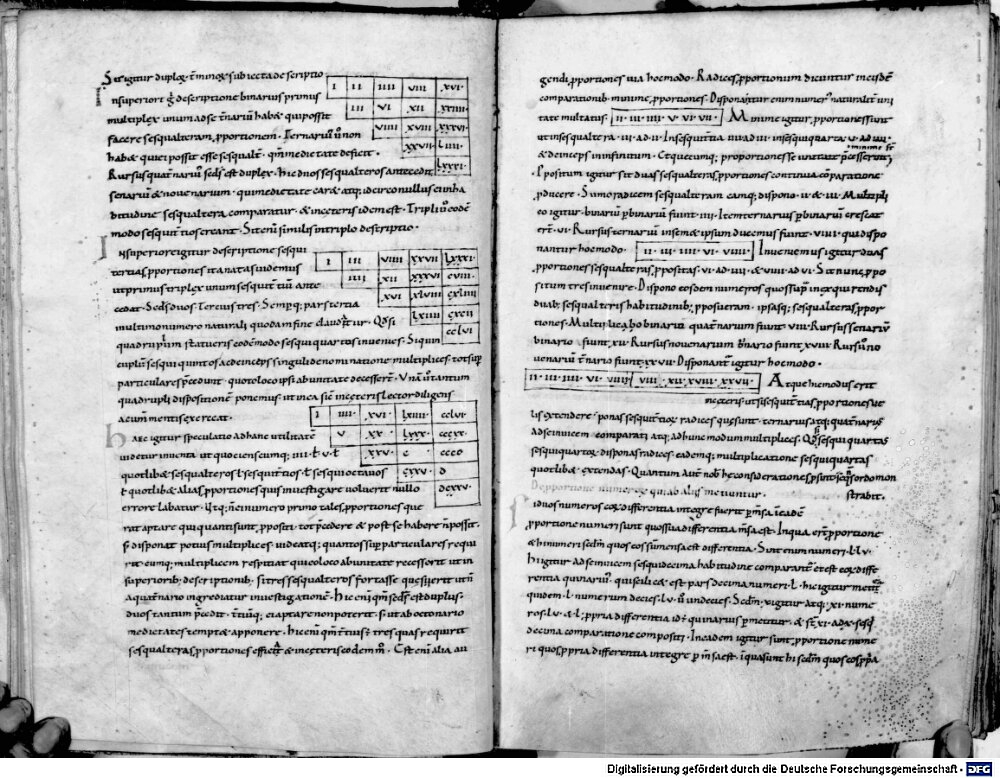 Sit igitur duplex · t̄minoꝝ subiecta descriptio
I II IIII VIII XVI·
III VI XII XXIIII
VIIII XVIII XXXVI·
XXVII LIIII·
LXXXI·
In superiori g̊ descriptione binarius primus
multiplex unum ad se t̄nariū habæ qui possit
facere sesqualteram ꝓportionem · Ternariuſ ū non
habæ qui ei possit esse sesqualt̄ · qm̄ medietate deficit ·
Rursus quat̄nariuſ sedi est duplex · hic duos sesqualteros antecedit
senariū & nouenarium · qui medietate carẽ atq; idcirco nullus ei in ha
bitudine sesqualtera comparatur · & in ceteris idem est · Tripli ū eodē
modo sesquit̄tios creant · Sit eni similis in triplo descriptio ·
I III VIIII XXVII LXXXI·
IIII XII XXXVI CVIII·
XVI XLVIII CXLIIII
LXIIII CXCII
CCLVI
In superiore igitur descriptione sesqui
tertias ꝓportiones ita natas uidemus
ut primus triplex unum sesquit̄tiū ante
cedat · Secds duos Tercius tres · Semp q; pars tertia
multimo numero naturali quodam fine claudatur · Qd si
quadruplum statueris eodē modo sesquiquartos inuenies · Si quin
cuplū sesquiquintos ac deinceps singuli denominatione multiplices · tot sup
particulares p̄cedunt · quoto loco ipsi ab unitate decesserint · Unā ū tantum
quadrupli dispositionē ponemus ut in ea sic in ceteris lector diligens
acumen mentis exerceat ·
I IIII· XVI· LXIIII· CCLVI·
V XX· LXXX· CCCXX·
XXV· C CCCC
CXXV· D
DCXXV·
Haec igitur speculatio ad hanc utilitatē
uidetur inuenta ut quociens cumq; IIII · ł V · ł
quotlibæ sesqualteros ł sesquit̄tios · ł sesquioctauos
ł quotlibæ alias ꝓportiones quis inuestigare uoluerit nullo
errore labatur · Utq; ne in numero primo tales ꝓportiones que
rat aptare qui quanti sunt ꝓpositi · tot p̄cedere & post se habere n̄ possit ·
s; disponat potius multiplices · uideatq; quantos sup particulares requi
rit eumq; multiplicem respitiat qui eo loco ab unitate recesserit ut in
superiorib; descriptionib; · si tres sesqualteros fortasse quesierit ut n̄
a quat̄nario ingrediatur inuestigationē · Hic eni qm̄ secds est duplus ·
duos tantum p̄cedit · t̄tiūq; ei aptare non poterit · s; ut ab octonario
medietates temptæ apponere · Hic eni qm̄ t̄tius ÷ tres quas requirit
sesqualteras ꝓportiones efficiæ & in ceteris eodem m̄ · Est eni alia au
gendi ꝓportiones uia hoc modo · Radices ꝓportionum dicuntur in eisdē
comparationib; minimę ꝓportiones · Disponantur enim numeri naturalit̄ uni
tate multatus · II · III · IIII · V · VI · VII · Minimę igitur ꝓportiones sunt
ut in sesqualtera · III · ad · II · In sesquit̄tia · IIII ad · III · in sesquiquarta · V · ad · IIII ·
& deinceps in infinitum · Et quecumq; proportiones se unitate p̄cesserunt minime sī
Propositum igitur sit duas sesqualteras ꝓportiones continua cōparatione
ꝓducere · Sumo radicem sesqualteram eamq; dispono · II · & · III · Multipli
co igitur · binariū p binariū fiunt · IIII · Item ternarius p binariū crescat
ert̄ · VI · Rursus ternarius in semæ ipsum ducemus fiunt · VIIII · qui dispo
nantur hoc modo · II · III · IIII · VI · VIIII · Inuenimus igitur duas
ꝓportiones sesqualteras ꝓpositas · VI · ad · IIII · & VIIII · ad · VI · Sit nunc ꝓpo
situm tres inuenire · Dispono eosdem numeros quos sup in exquirendis
duab; sesqualteris habitudinib; ꝓposueram · ipsasq; sesqualteras ꝓpor
tiones · Multiplico g̊ binariū quat̄narium fiunt · VIII · Rursus senariū
binario · fiunt · XII · Rursus nouenarium binario fiunt · XVIII · Rursū no
uenariū t̄nario fiunt · XXVII · Disponant̄ igitur hoc modo ·
II · III · IIII · VI · VIIII VIII · XII · XVIII · XXVII · Atque hic modus erit
in ceteris · ut si sesquit̄tias ꝓportiones ue
lis extendere · ponas sesquit̄tioꝝ radices qui sunt · ternarius atq; quat̄narius
ad se inuicem comparati atq; ad hunc modum multiplices · Qd si sesquiquartas
sesquiquartoꝝ disponas radices · eademq; multiplicatione sesquiquartas
quotlibæ extendas · Quantum aut̄ nob̄ hec consideratio ꝓsint seqns ordo mon
De proportione numeroꝝ qui ab aliis metiuntur · strabit ·
Si duos numeros eoꝝ differentia integre fuerit p mēsa in eadē
ꝓportione numeri sunt quos sua differentia mēsa est · In qua ert̄ ꝓportione
& hi numeri scdm̄ quos eos sū mensa est differentia · Sunt enim numeri · L · LV ·
Hi igitur ad se inuicem sesquidecima habitudine comparant̄ & est eoꝝ diffe
rentia quinariū · qui scili cæ est pars decima numeri · L · hic igitur metit̄
quidem · L · numerum decies · LV · ū undecies · Scdm̄ · X igitur atq; · XI · nume
ros · LV · & · L · ꝓpria differentia id ÷ quinarius p metitur · & st̄ XI · ad X · sesq
decima comparatione compositi · In eadem igitur sunt ꝓportione nume
ri quos ꝓpria differentia integre p mēsa est · in qua sunt hi scdm̄ quos eos ꝓpa
Digitalisierung gefördert durch die Deutsche Forschungsgemeinschaft - DFG